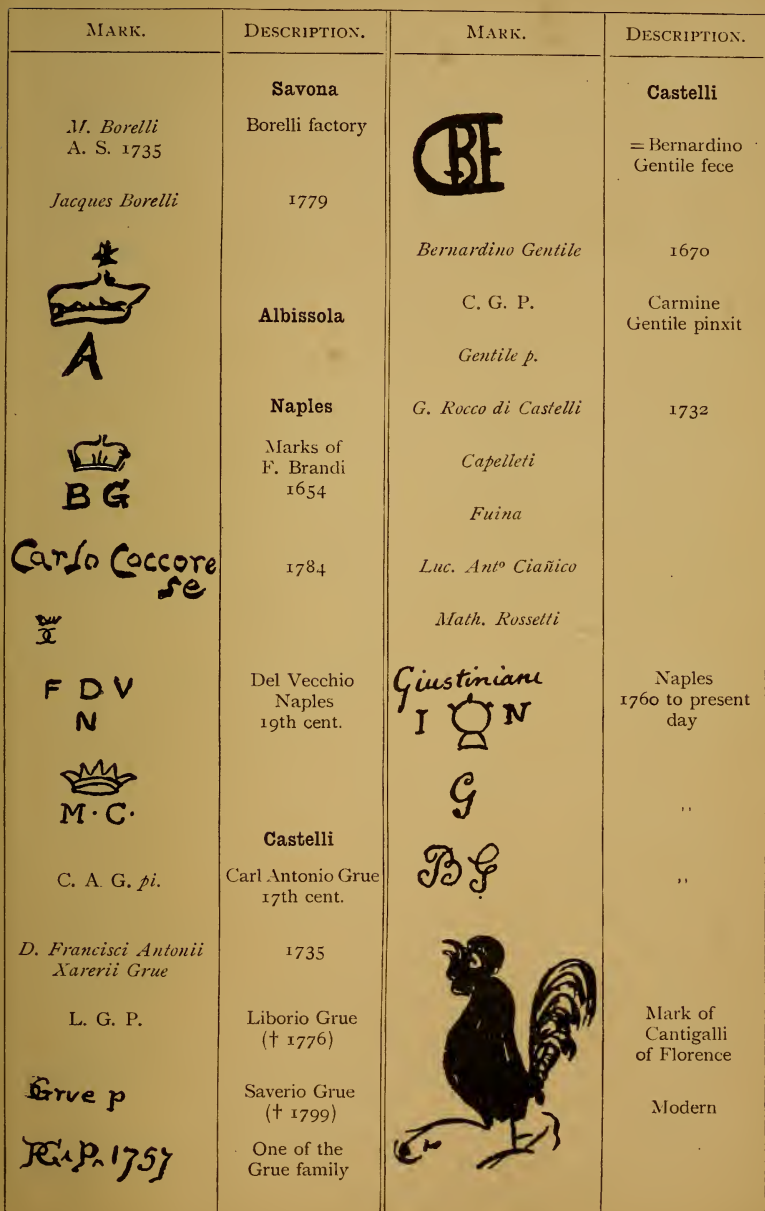 MARK. DESCRIPTION.
Savona
M. Borelli Borelli factory
A. S. 1735
Jacques Borelli 1779
A Albissola
Naples
Marks of
F. Brandi
B G 1654
Carlo Coccore
se 1784
F D V Del Vecchio
N Naples
19th cent.
M·C·
Castelli
C. A. G. pi. Carl Antonio Grue
17th cent.
D. Francisci Antonii 1735
Xarerii Grue
L. G. P. Liborio Grue
(† 1776)
Grue p Saverio Grue
(† 1799)
P. 1757 One of the
Grue family
MARK. DESCRIPTION.
Castelli
= Bernardino
Gentile fece
Bernardino Gentile 1670
C. G. P. Carmine
Gentile pinxit
Gentile p.
G. Rocco di Castelli 1732
Capelleti
Fuina
Luc. Antº Ciañico
Math. Rossetti
Giustiniani Naples
I N 1760 to present
day
G ,,
B G ,,
Mark of
Cantigalli
of Florence
Modern